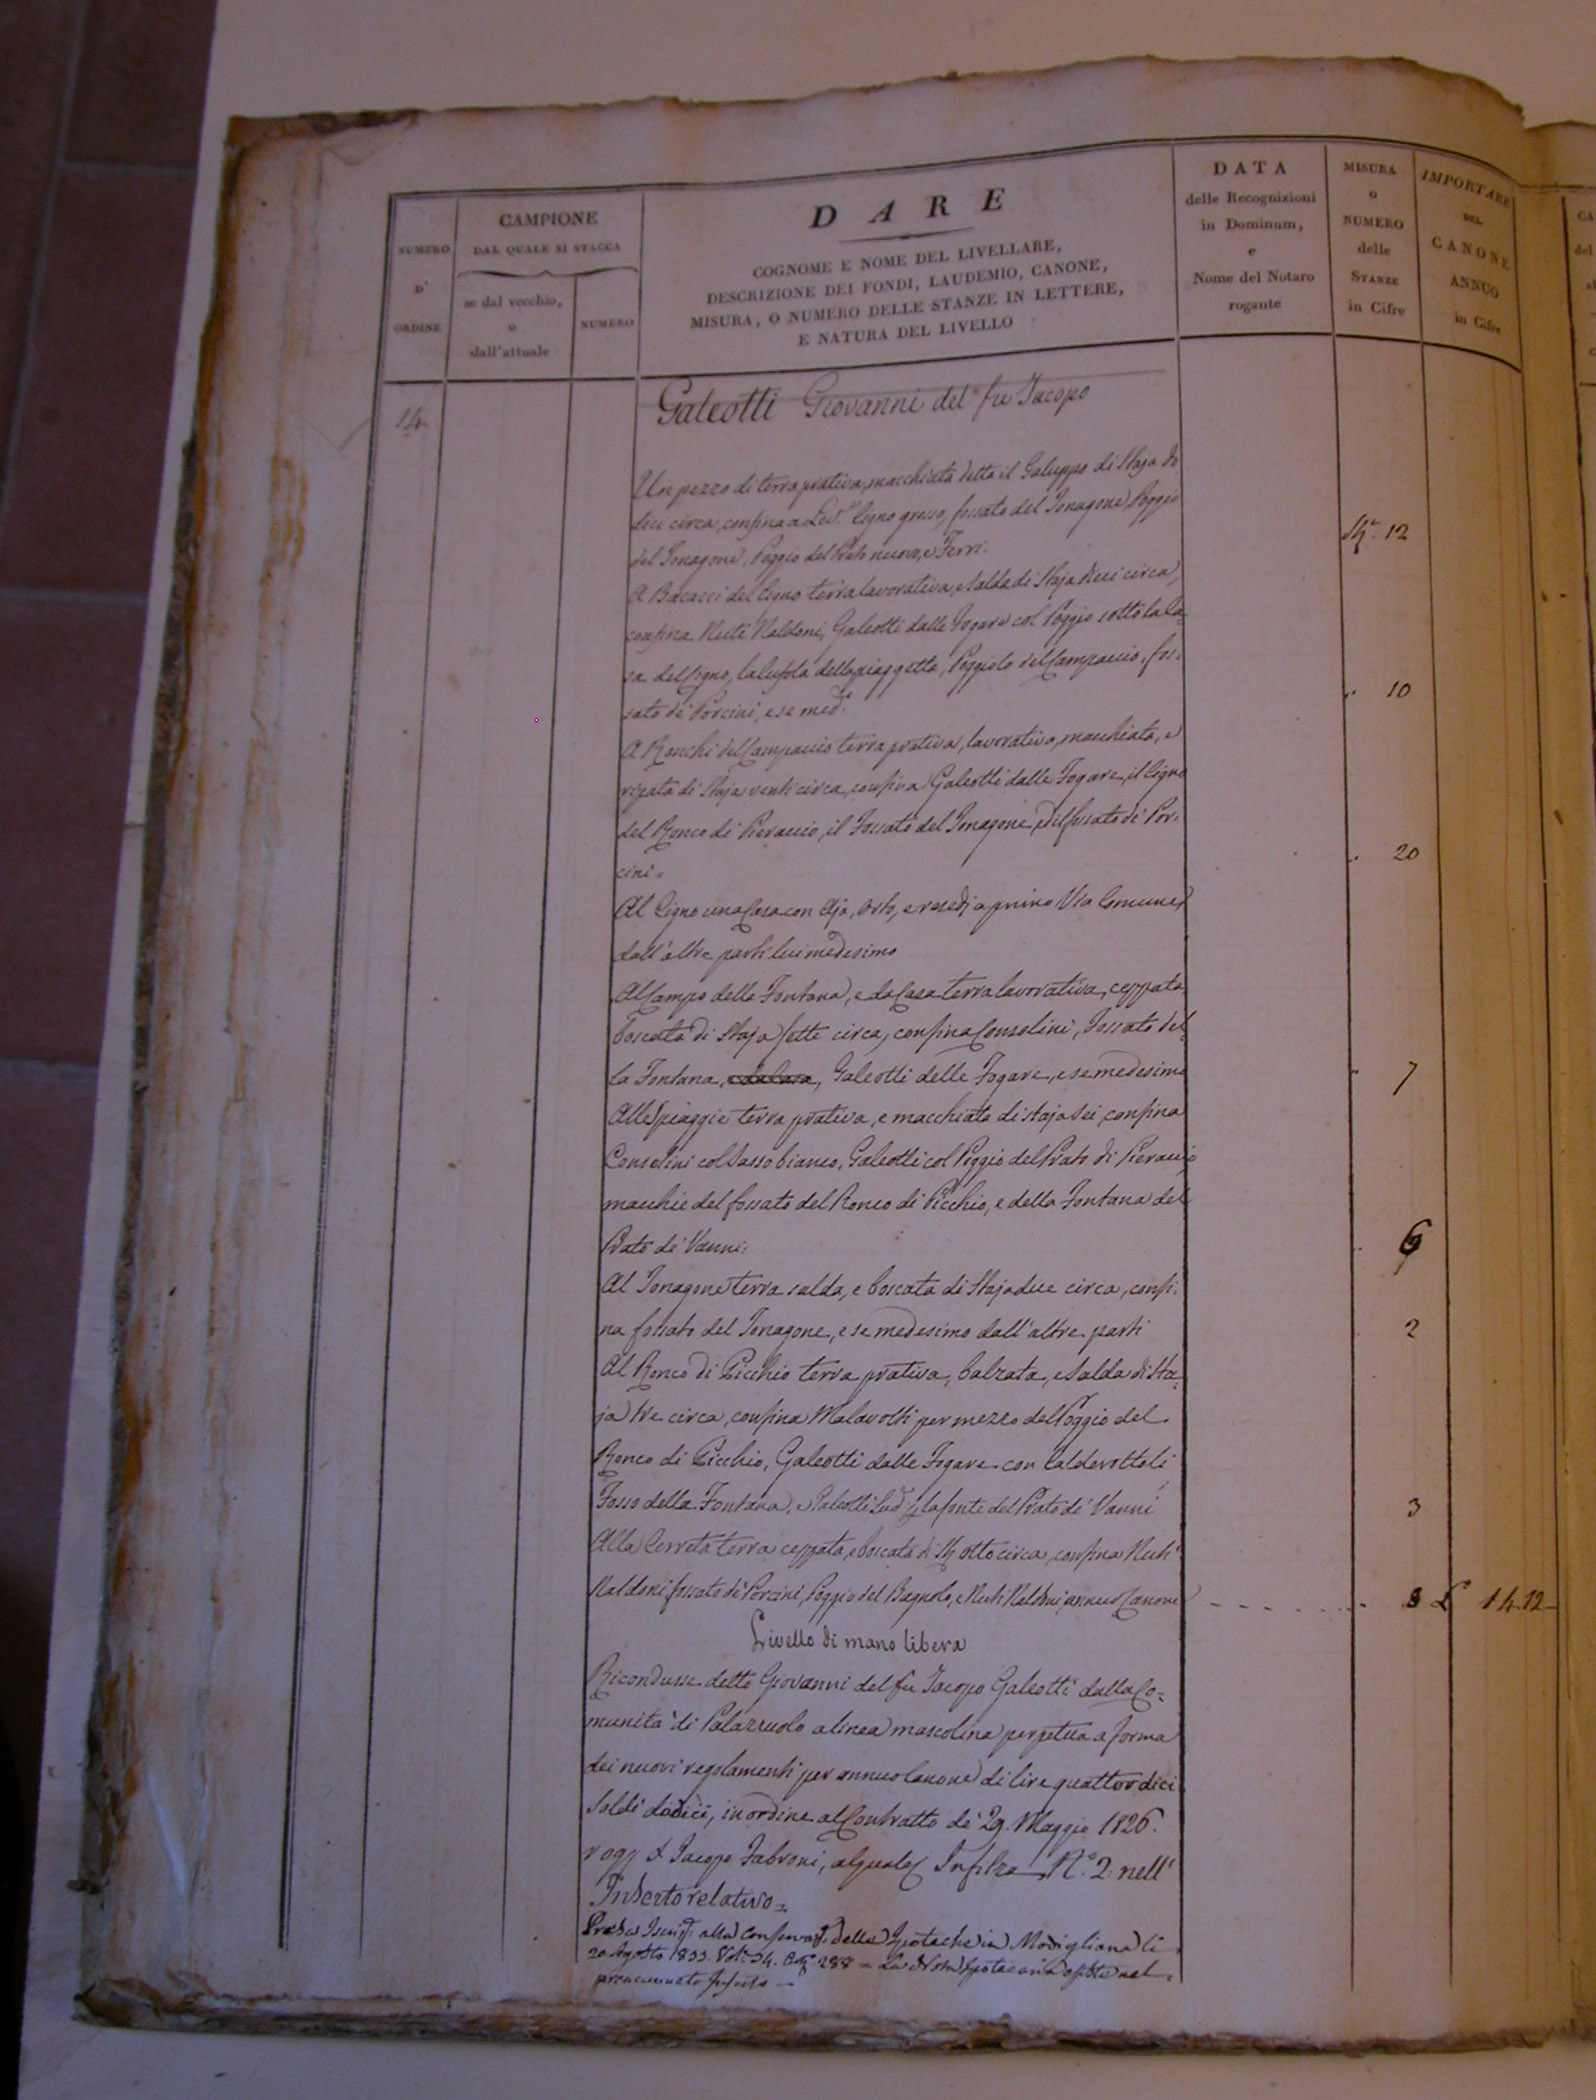 NUMERO
D'
ORDINE
CAMPIONE
DAL QUALE SI STACCA
se dal vecchio,
o
dall'attuale
NUMERO
DARE
COGNOME E NOME DEL LIVELLARE,
DESCRIZIONE DEI FONDI, LAUDEMIO, CANONE,
MISURA, O NUMERO DELLE STANZE IN LETTERE,
E NATURA DEL LIVELLO
DATA
delle Recognizioni
in Dominum,
e
Nome del Notaro
rogante
MISURA
o
NUMERO
delle
STANZE
in Cifre
IMPORTARE
DEL
CANONE
ANNUO
in Cifre
14
Galeotti Giovanni del fu Jacopo
Un pezzo di terra prativa, macchiata detta il Galuppo di Staja do
dici circa, confina a Cigno grosso, fossato del Tonagone, Poggio
del Tonagone, Poggio del Prato nuovo, e Ferri. 12
A Bacacci del Cigno terra lavorativa, e salda di Staja dieci circa,
confina Nuti Naldoni, Galeotti dalle Fogare col Poggio sotto la Ca-
sa del Cigno, la della piaggetta, Poggiolo del Campaccio, fos-
sato de' Porcini, e se med.º 10
A Ronchi del Campaccio terra prativa, lavorativa, macchiata, e
ripata di Staja venti circa, confina Galeotti dalle Fogare, il Cigno
del Ronco di Pieraccio, il Fossato del Tonagone, ed il fossato di Por-
cini= 20
Al Cigno una Casa con Aja, Orto, e resedj a primo Via Comune,
dall'altre parti lui medesimo
Al Campo della Fontana, e da Casa terra lavorativa, ceppata
boscata di Staja sette circa, confina Consolini, Fossato del-
la Fontana, Galeotti delle Fogare, e se medesimo 7
Alle Spiaggie terra prativa, e macchiata di staja sei, confina
Consolini col Sasso bianco, Galeotti col Poggio del Prato di Pieraccio
macchie del fossato del Ronco di Picchio, e della Fontana del
Prato de' Vanni: 6
Al Tonagone terra salda, e boscata di Staja due circa, confi-
na fossato del Tonagone, e se medesimo dall'altre parti 2
Al Ronco di Picchio terra prativa, balzata, e salda di Sta-
ja tre circa, confina Malavolti per mezzo del Poggio del
Ronco di Picchio, Galeotti dalle Fogare con
Fosso della Fontana, e Galeotti la fonte del Prato de' Vanni 3
Alla Cerreta terra ceppata, e boscata di St. otto circa, confina Nuti
Naldoni, fossato de' Porcini, Poggio del Bagnolo, e Nuti Naldoni, annuo Canone 8 £ 14.12-
Livello di mano libera
Ricondusse detto Giovanni del fu Jacopo Galeotti dalla Co-
munità di Palazzuolo a linea mascolina perpetua a forma
dei nuovi regolamenti per annuo Canone di lire quattordici
Soldi dodici, in ordine al Contratto de' 29. Maggio 1826.
rog. Jacopo Fabroni, al quale Infilza N.º 2. nell'
Inserto relativo=
alla delle Ipoteche in Modigliana li
20 Agosto 1833. Vol. 34. 288 = La Nota Ipotecaria nel
preaccennato Inserto =